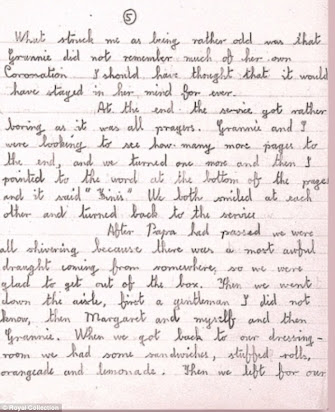 5
What struck me as being rather odd was that
Grannie did not remember much of her own
Coronation. I should have thought that it would
have stayed in her mind for ever.
At the end the service got rather
boring as it was all prayers. Grannie and I
were looking to see how many more pages to
the end, and we turned one more and then I
pointed to the word at the bottom of the page
and it said "Finis." We both smiled at each
other and turned back to the service.
After Papa had passed we were
all shivering because there was a most awful
draught coming from somewhere, so we were
glad to get out of the box. Then we went
down the aisle, first a gentleman I did not
know, then Margaret and myself and then
Grannie. When we got back to our dressing-
room we had some sandwiches, stuffed rolls,
orangeade and lemonade. Then we left for our
© Royal Collection